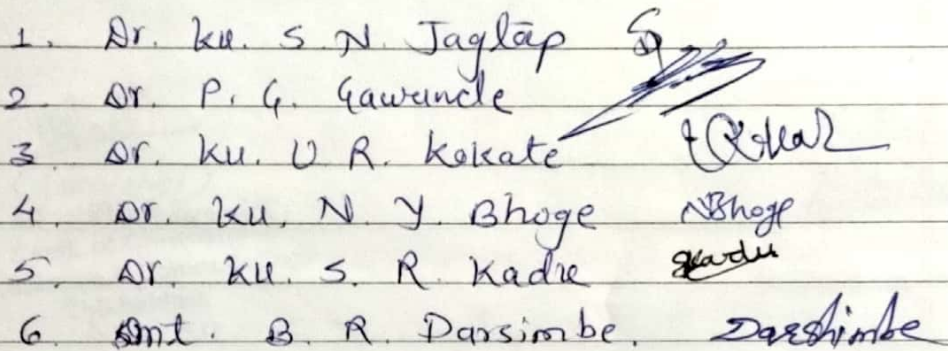 1. Dr. Ku. S. N. Jagtap
2. Dr. P. G. Gawande
3. Dr. Ku. U. R. Kokate
4. Dr. Ku. N. Y. Bhoge NBhoge
5. Dr. Ku. S. R. Kadu Skadu
6. Smt. B. R. Darsimbe. Darshimbe